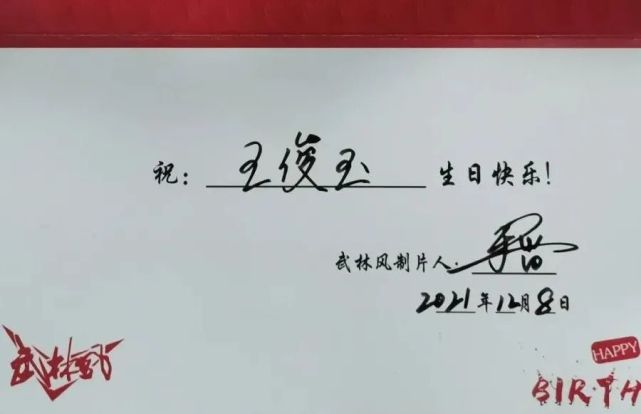 祝：王俊玉生日快乐！
武林风制片人：
2021年12月8日
武林风
HAPPY
BIRTH